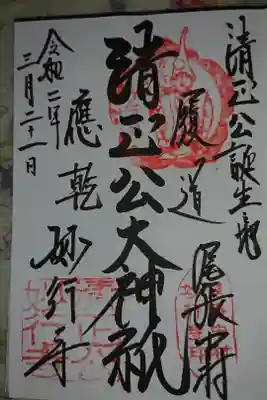 清正公誕生之地
尾張中村
履道
應乾
清正公大神祇
妙行寺
令和二年
三月二十一日